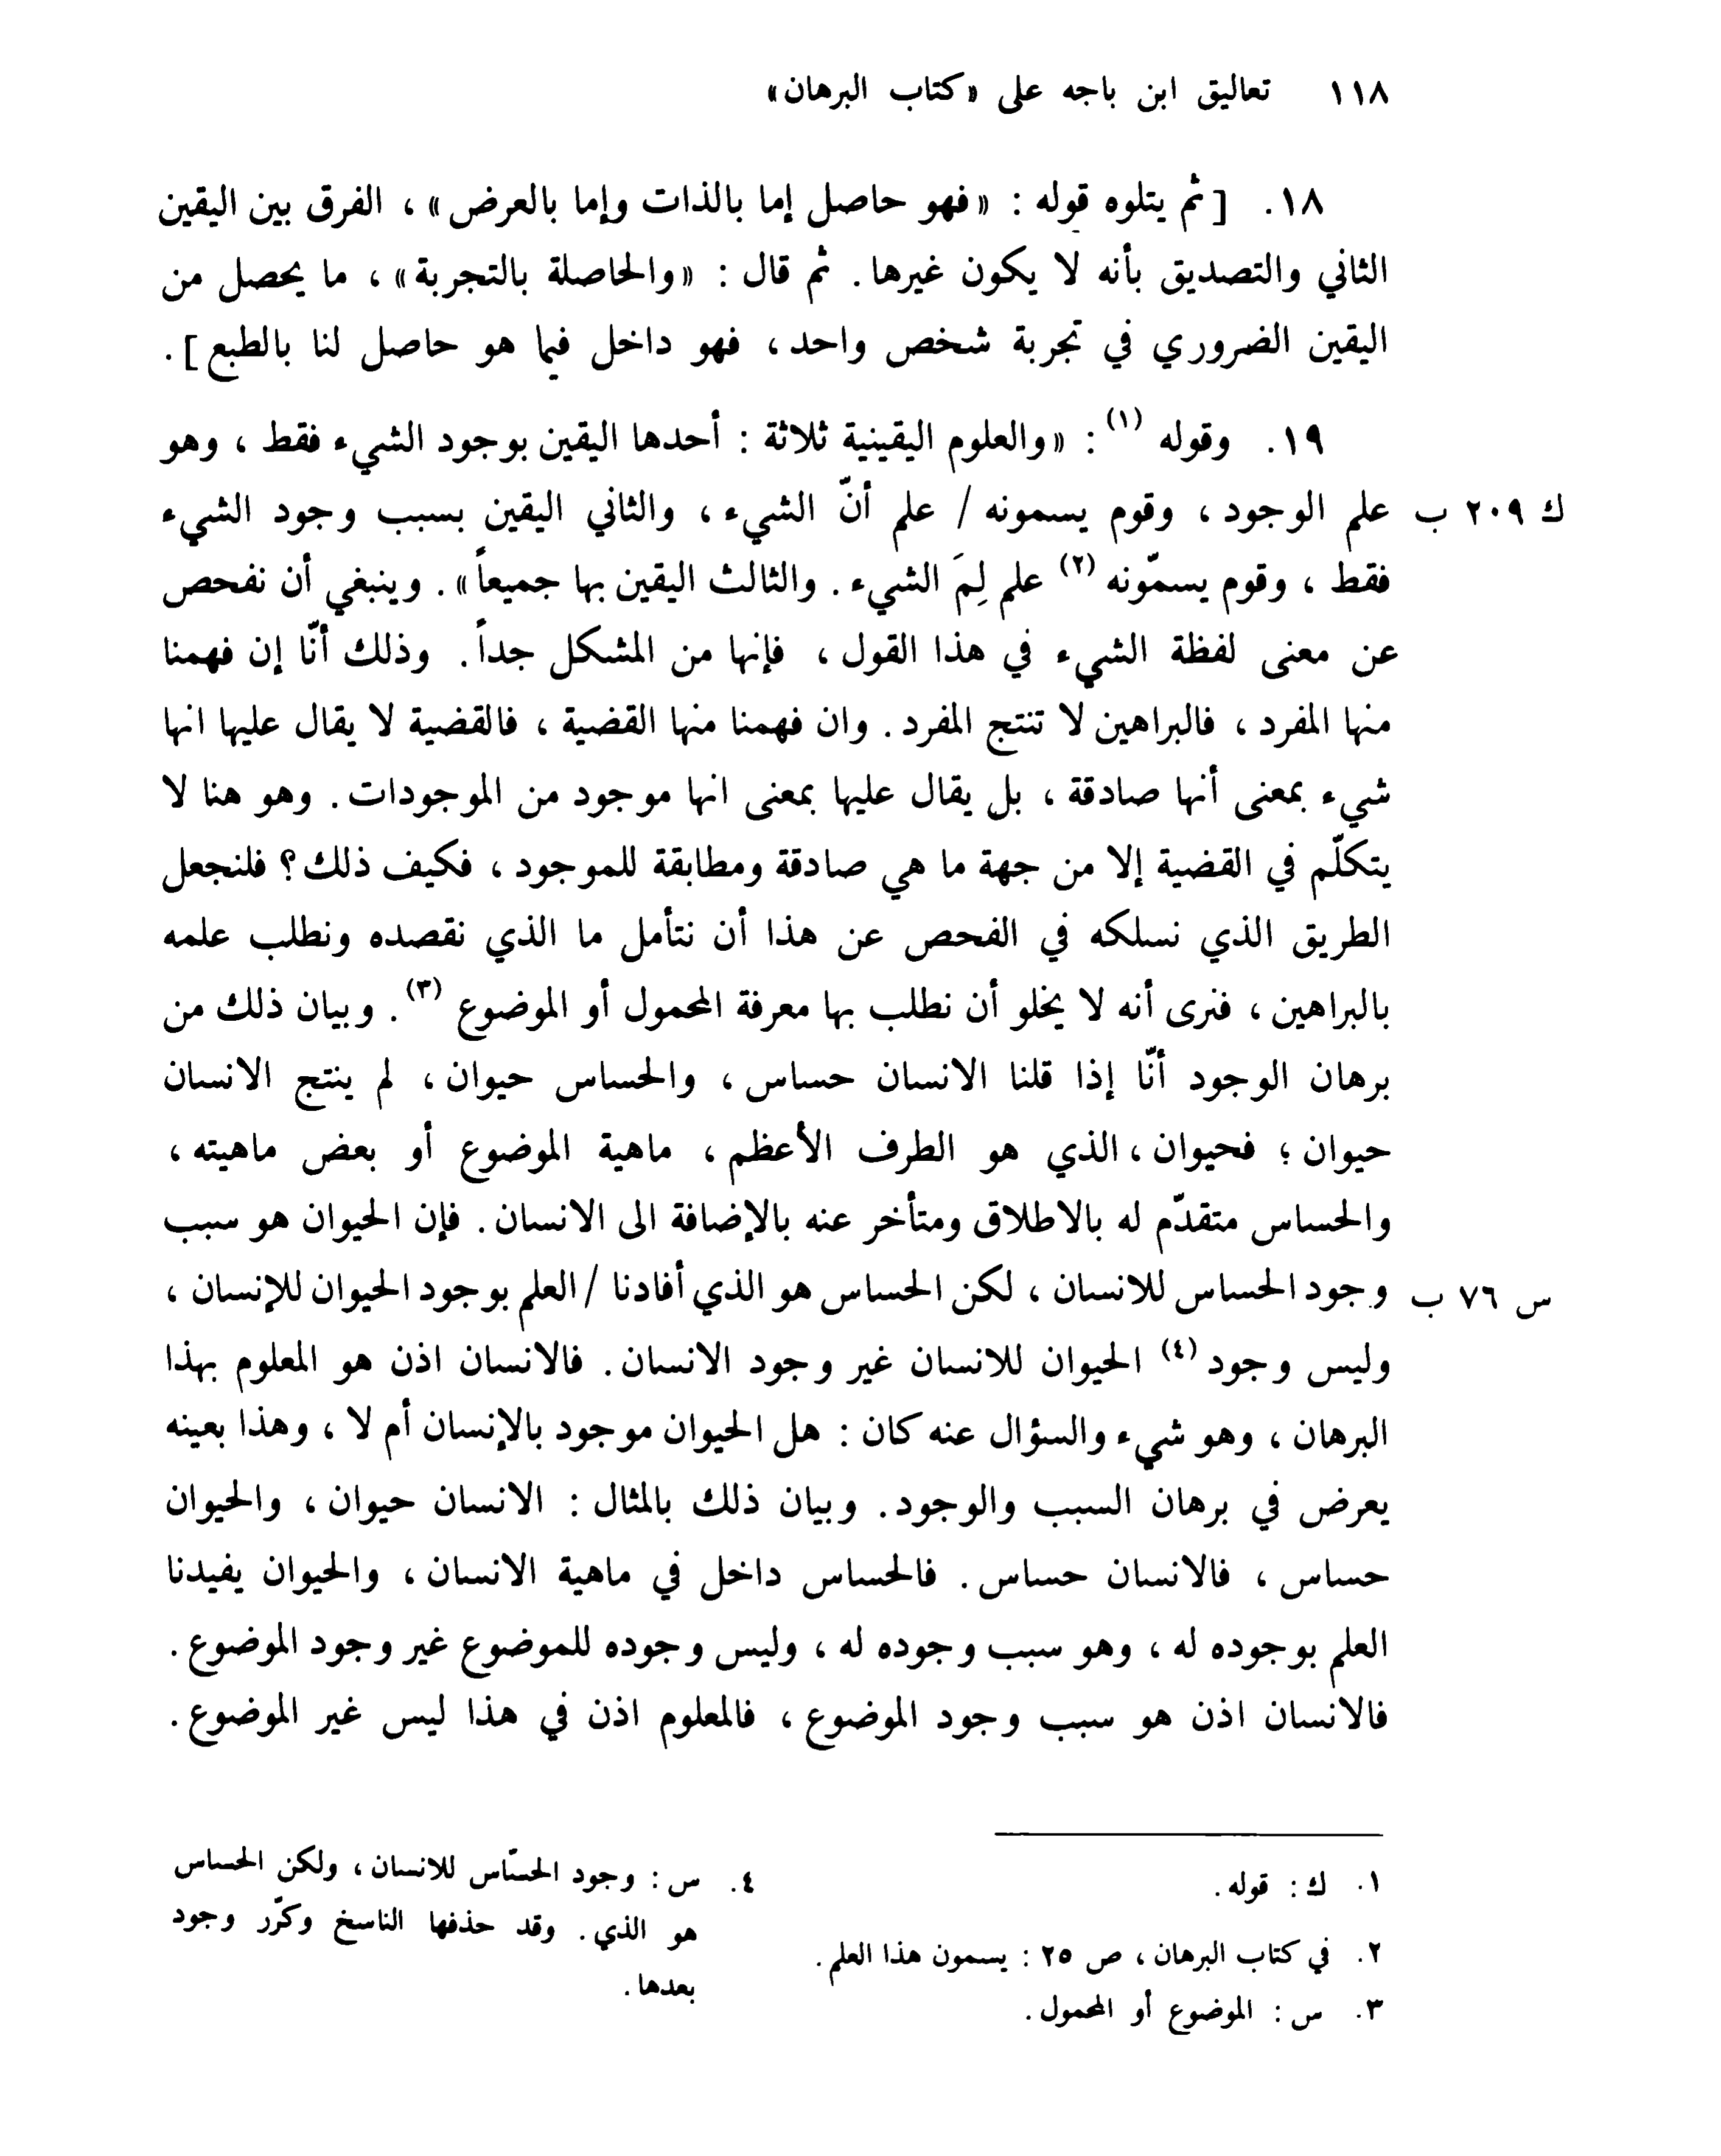 ١١٨ تعاليق ابن باجه على «كتاب البرهان»
١٨. [ثم يتلوه قوله : «فهو حاصل إما بالذات وإما بالعرض» ، الفرق بين اليقين
الثاني والتصديق بأنه لا يكون غيرها. ثم قال : «والحاصلة بالتجربة» ، ما يحصل من
اليقين الضروري في تجربة شخص واحد ، فهو داخل فيما هو حاصل لنا بالطبع].
١٩. وقوله (١) : «والعلوم اليقينية ثلاثة : أحدها اليقين بوجود الشيء فقط ، وهو
ك ٢٠٩ ب علم الوجود ، وقوم يسمونه / علم أنّ الشيء ، والثاني اليقين بسبب وجود الشيء
فقط ، وقوم يسمّونه (٢) علم لِمَ الشيء. والثالث اليقين بها جميعاً». وينبغي أن نفحص
عن معنى لفظة الشيء في هذا القول ، فإنها من المشكل جداً. وذلك أنّا إن فهمنا
منها المفرد ، فالبراهين لا تنتج المفرد. وان فهمنا منها القضية ، فالقضية لا يقال عليها انها
شيء بمعنى أنها صادقة ، بل يقال عليها بمعنى انها موجود من الموجودات. وهو هنا لا
يتكلّم في القضية إلا من جهة ما هي صادقة ومطابقة للموجود ، فكيف ذلك؟ فلنجعل
الطريق الذي نسلكه في الفحص عن هذا أن نتأمل ما الذي نقصده ونطلب علمه
بالبراهين ، فنرى أنه لا يخلو أن نطلب بها معرفة المحمول أو الموضوع (٣). وبيان ذلك من
برهان الوجود أنّا إذا قلنا الانسان حساس ، والحساس حيوان ، لم ينتج الانسان
حيوان ؛ فحيوان ، الذي هو الطرف الأعظم ، ماهية الموضوع أو بعض ماهيته ،
والحساس متقدّم له بالاطلاق ومتأخر عنه بالإضافة الى الانسان. فإن الحيوان هو سبب
س ٧٦ ب وجود الحساس للانسان ، لكن الحساس هو الذي أفادنا / العلم بوجود الحيوان للإنسان ،
وليس وجود (٤) الحيوان للانسان غير وجود الانسان. فالانسان اذن هو المعلوم بهذا
البرهان ، وهو شيء والسؤال عنه كان : هل الحيوان موجود بالإنسان أم لا ، وهذا بعينه
يعرض في برهان السبب والوجود. وبيان ذلك بالمثال : الانسان حيوان ، والحيوان
حساس ، فالانسان حساس. فالحساس داخل في ماهية الانسان ، والحيوان يفيدنا
العلم بوجوده له ، وهو سبب وجوده له ، وليس وجوده للموضوع غير وجود الموضوع.
فالانسان اذن هو سبب وجود الموضوع ، فالمعلوم اذن في هذا ليس غير الموضوع.
١. ك : قوله.
٢. في كتاب البرهان ، ص ٢٥ : يسمون هذا العلم.
٣. س : الموضوع أو المحمول.
٤. س : وجود الحسّاس للانسان ، ولكن الحساس
هو الذي. وقد حذفها الناسخ وكرّر وجود
بعدها.